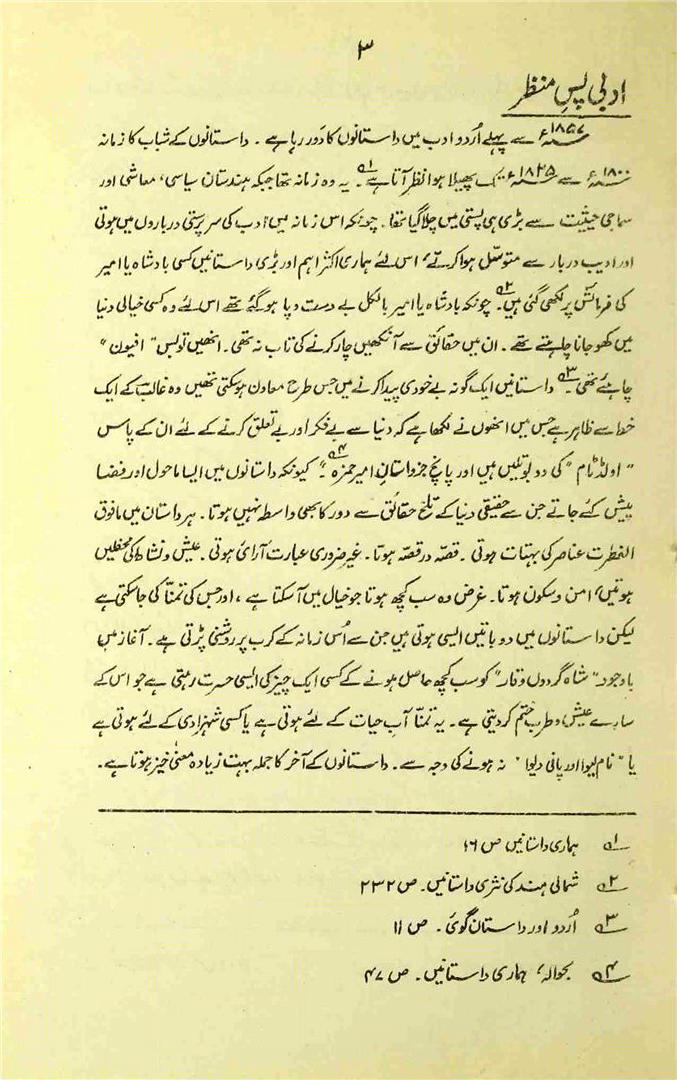 ۳
ادبی پسِ منظر
۱۸۵۷ء سے پہلے اُردو ادب میں داستانوں کا دَور رہا ہے ۔ داستانوں کے شباب کا زمانہ
۱۸۰۰ء سے ۱۸۲۵ء تک پھیلا ہوا نظر آتا ہے ۱؎۔ یہ وہ زمانہ تھا جبکہ ہندستان سیاسی، معاشی اور
سماجی حیثیت سے بڑی ہی پستی میں چلا گیا تھا۔ چونکہ اس زمانہ میں ادب کی سرپرستی درباروں میں ہوتی
اور ادیب دربار سے متوسّل ہوا کرتے، اس لئے ہماری اکثر اہم اور بڑی داستانیں کسی بادشاہ یا امیر
کی فرمائش پر لکھی گئی ہیں ۲؎۔ چونکہ بادشاہ یا امیر بالکل بے دست و پا ہو گئے تھے اس لئے وہ کسی خیالی دنیا
میں کھو جانا چاہتے تھے ۔ ان میں حقائق سے آنکھیں چار کرنے کی تاب نہ تھی ۔ انھیں تو بس "افیون"
چاہئے تھی ۳؎۔ داستانیں ایک گونہ بے خودی پیدا کرنے میں جس طرح معاون ہو سکتی تھیں وہ غالب کے ایک
خط سے ظاہر ہے جس میں انھوں نے لکھا ہے کہ دنیا سے بے فکر اور بے تعلق کرنے کے لئے ان کے پاس
"اولڈ ٹام" کی دو بوتلیں ہیں اور پانچ جزو داستانِ امیر حمزہ ۴؎۔ کیونکہ داستانوں میں ایسا ماحول اور فضا
پیش کئے جاتے جن سے حقیقی دنیا کے تلخ حقائق سے دور کا بھی واسطہ نہیں ہوتا ۔ ہر داستان میں مافوق
الفطرت عناصر کی بہتات ہوتی ۔ قصّہ در قصّہ ہوتا ۔ غیر ضروری عبارت آرائی ہوتی ۔ عیش و نشاط کی محفلیں
ہوتیں، امن و سکون ہوتا ۔ غرض وہ سب کچھ ہوتا جو خیال میں آ سکتا ہے ، اور جس کی تمنّا کی جا سکتی ہے
لیکن داستانوں میں دو باتیں ایسی ہوتی ہیں جن سے اُس زمانہ کے کرب پر روشنی پڑتی ہے ۔ آغاز میں
باوجود "شاہ گردوں وقار" کو سب کچھ حاصل ہونے کے کسی ایک چیز کی ایسی حسرت رہتی ہے جو اس کے
سارے عیش و طرب ختم کر دیتی ہے ۔ یہ تمنّا آبِ حیات کے لئے ہوتی ہے یا کسی شہزادی کے لئے ہوتی ہے
یا "نام لیوا اور پانی دلیوا" نہ ہونے کی وجہ سے ۔ داستانوں کے آخر کا جملہ بہت زیادہ معنیٰ خیز ہوتا ہے ۔
۱؎ ہماری داستانیں ص ۱۶
۲؎ شمالی ہند کی نثری داستانیں ۔ ص ۲۳۲
۳؎ اُردو اور داستان گوئی ۔ ص ۱۱
۴؎ بحوالہ، ہماری داستانیں ۔ ص ۴۷